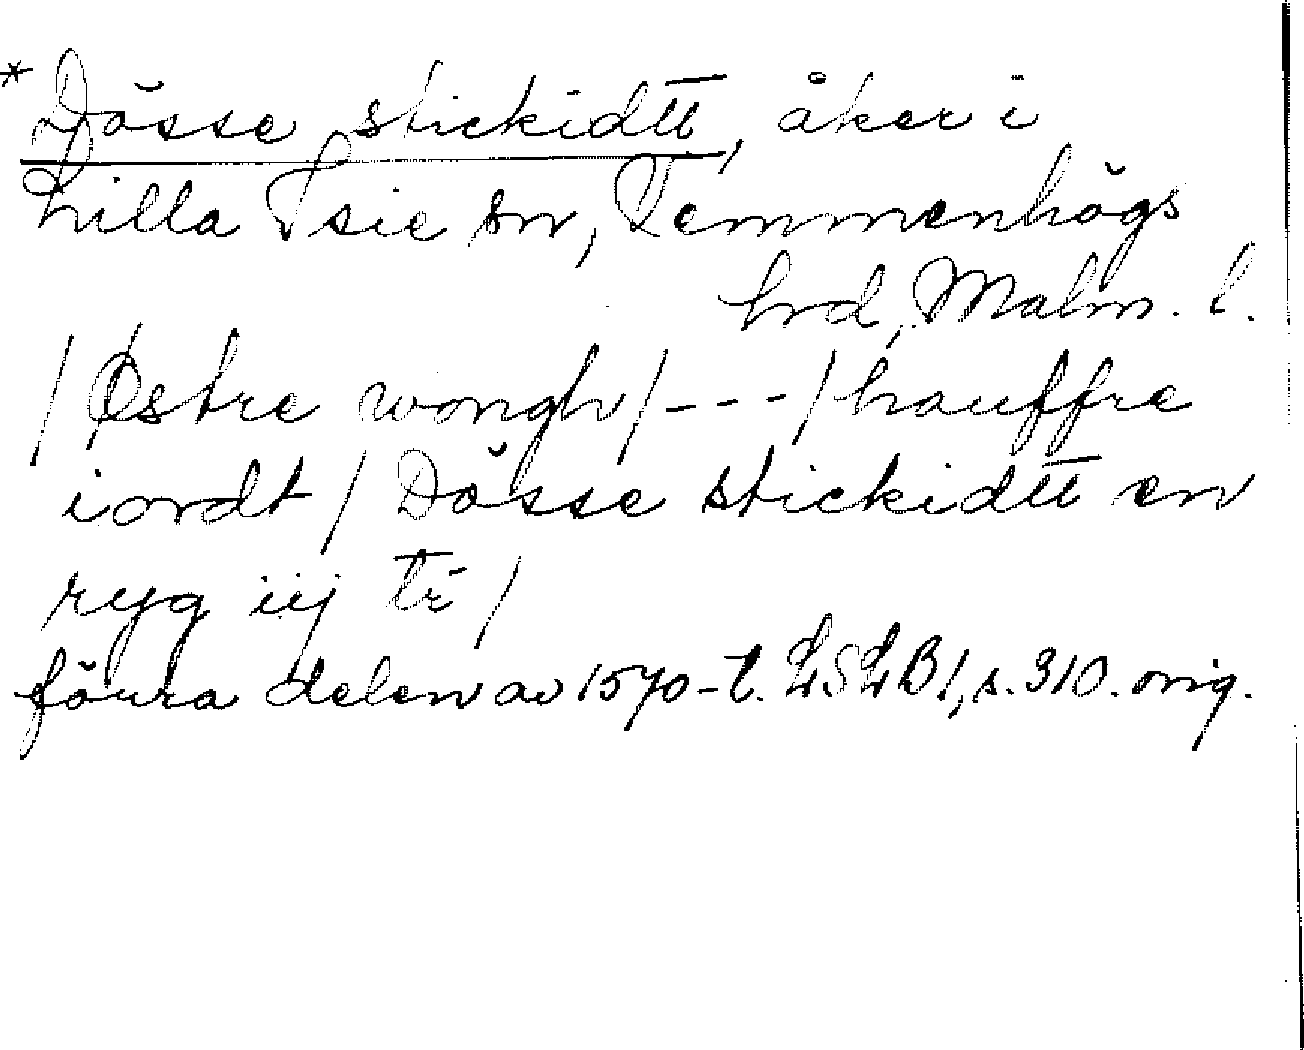 * Dösse stickidtt, åker i
Lilla Isie sn, Vemmenhögs
hrd, Malm. l.
/ Østre wongh / - - - / hauffre
iordt / Dösse stickidtt en
ryg iij tr /
förra delen av 1570-t. LSLB1, s. 310. orig.